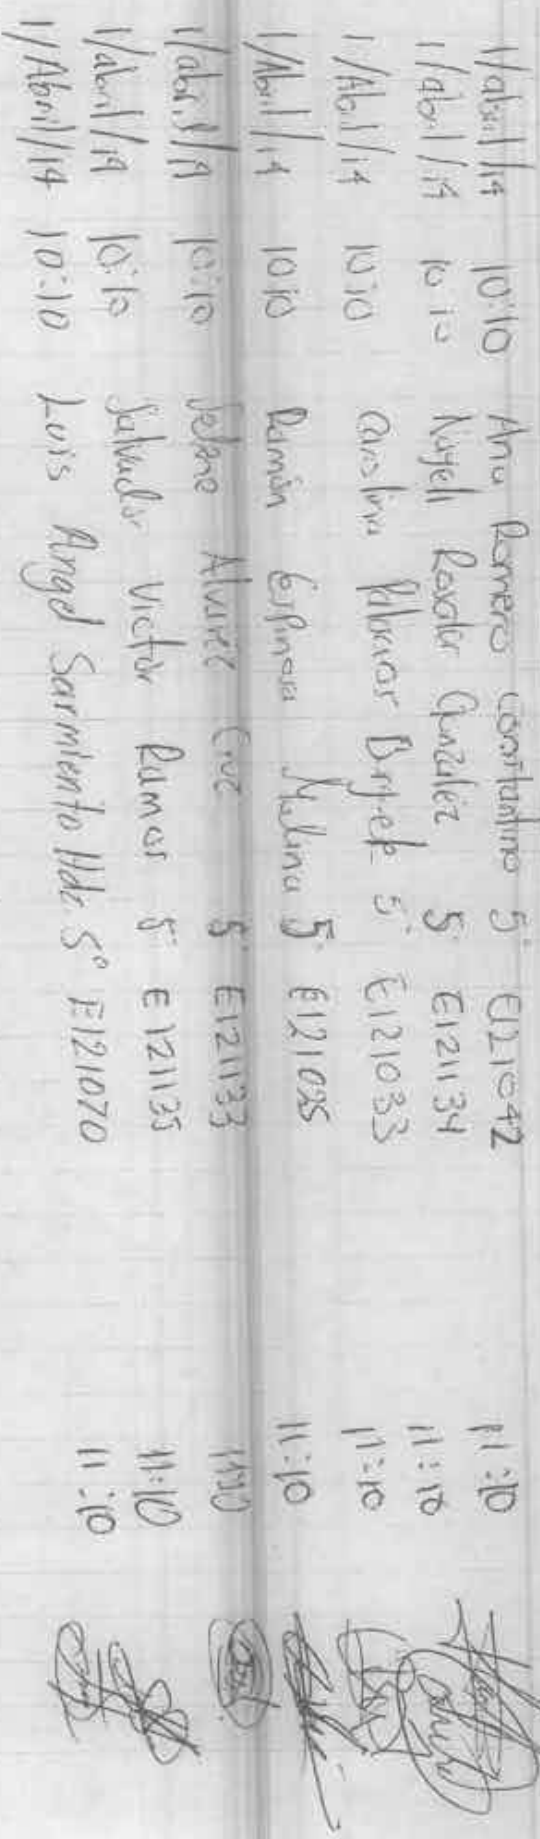 1/abril/14 10:10 Ana Romero Constantino 5° E121042 11:10
1/abril/14 10:10 Nayeli González 5° E121134 11:10
1/Abril/14 10:10 Carolina 5° E121033 11:10
1/Abril/14 10:10 Ramón Espinosa Molina 5° 11:10
1/abril/14 10:10 Alvarez Cruz 5° E121133 11:10
1/abril/14 10:10 Salvador Victor Ramos 5° E121135 11:10
1/Abril/14 10:10 Luis Angel Sarmiento Hdz. 5° E121020 11:10